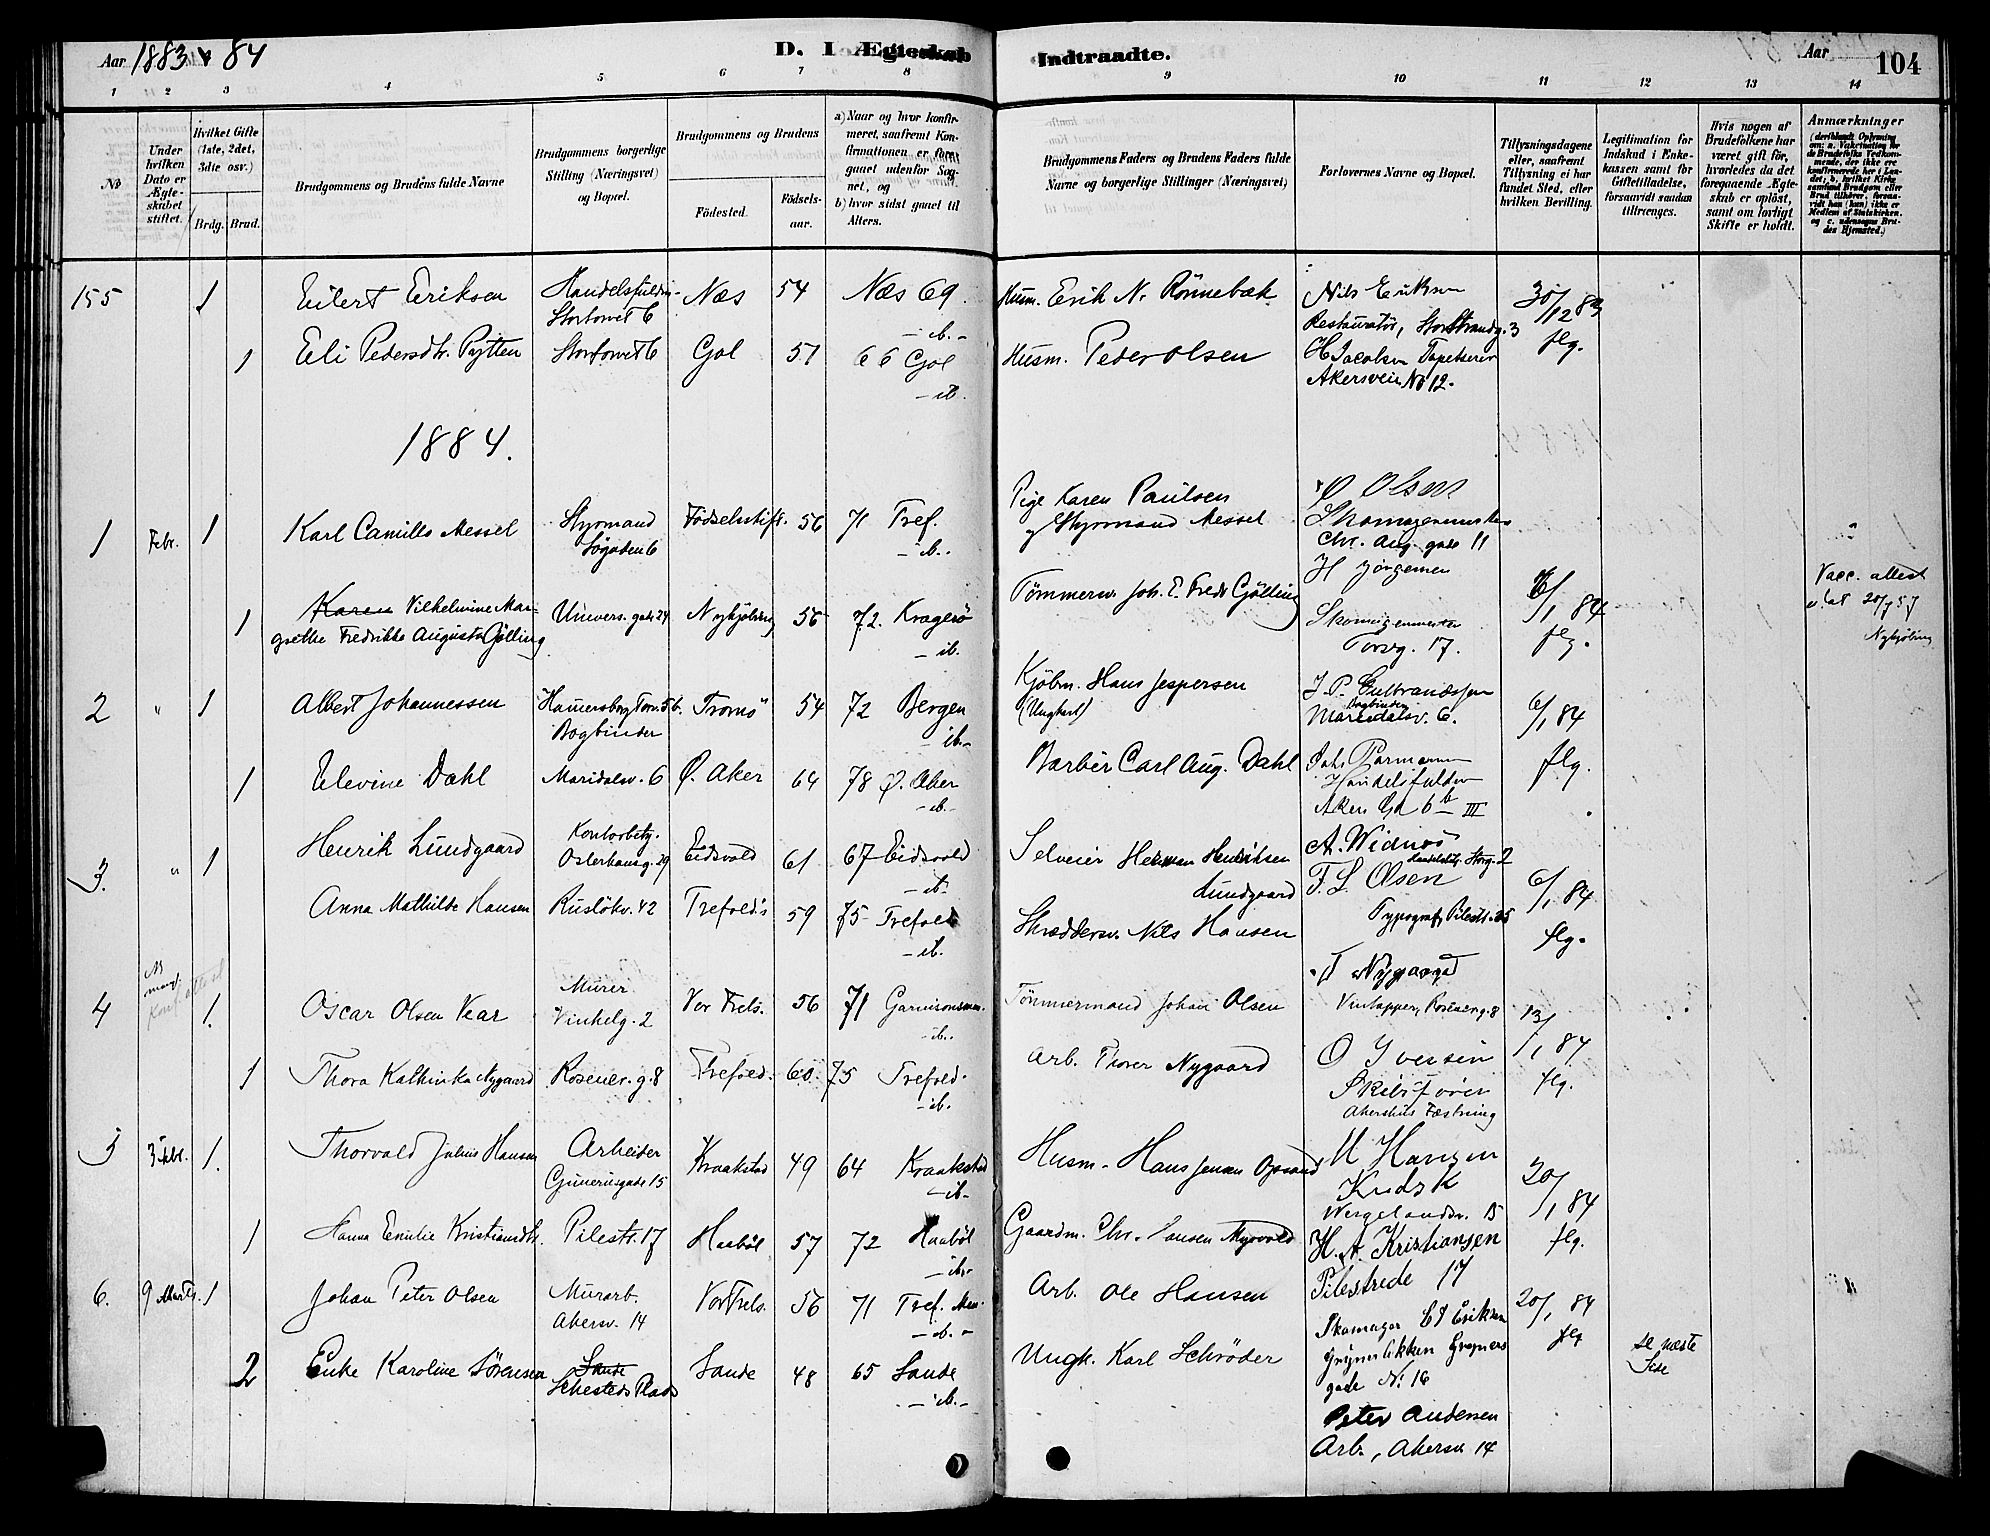 Aar 1883 & 84
D. I Ægteskab Indtraadte.
Aar 104
1 2 3 4 5 6 7 8 9 10 11 12 13 14
No
Under hvilken Dato er Ægteskabet stiftet.
Hvilket Gifte (1ste, 2det, 3die osv.)
Brdg. Brud.
Brudgommens og Brudens fulde Navne
Brudgommens borgerlige Stilling (Næringsvei) og Bopæl.
Brudgommens og Brudens
Fødested. Fødselsaar.
a) Naar og hvor konfirmeret, saafremt Konfirmationen er foregaaet udenfor Sognet, og
b) hvor sidst gaaet til Alters.
Brudgommens Faders og Brudens Faders fulde Navne og borgerlige Stillinger (Næringsvei)
Forlovernes Navne og Bopæl.
Tillysningsdagene eller, saafremt Tillysning ei har fundet Sted, efter hvilken Bevilling.
Legitimation for Indskud i Enkekassen samt for Giftetilladelse, forsaavidt saadan tiltrænges.
Hvis nogen af Brudefolkene har været gift før, hvorledes da det foregaaende Ægteskab er opløst, samt om lovligt Skifte er holdt.
Anmærkninger
155 1 Eilert Eriksen
Stortorvet 6
Næs 54 Næs 69
- ib. -
Husm. Erik N. Rönnebæk
Nils Eriksen
Restauratör, Storstrandg. 3
30/12 83
flg.
1 Eli Pedersdtr. Pytten
Stortorvet 6
Gol 57 66 Gol
- ib.
Husm. Peder Olsen
H Jacobsen Tapetserer
Akersveien No 12.
1884.
1 Febr. 1 Karl Camillo Messel
Styrmand
Søgaden 6
Fødselsstift. 56 71 Tref.
- ib.
Pige Karen Paulsen
og Styrmand Messel
O Olsen
Skomagermester
Chr. Aug. gade 11
1 Karen Vilhelmine Mar-
grethe Fredrikke Augusta Gjölling
Univers. gade 24
Nykjøbing 56 72. Kragerø
- ib.
Tömmersv. Joh. E. Fredr Gjölling
H Jörgensen
Skomagermester
Torvg. 17.
6/1 84
flg.
Vacc. attest
20/7 57
Nykjöbing
2 " 1 Albert Johannessen
Hammersborg Torv 5 b.
Bogbinder
Tromsö 54 72 Bergen
- ib. -
Kjöbm. Hans Jespersen
(Ungkarl)
J. P. Gulbrandssen
Bogbinder
Maridalsv. 6.
6/1 84
flg.
1 Elevine Dahl
Maridalsv. 6
Ø. Aker 64 78 Ø. Aker
- ib. -
Barber Carl Aug. Dahl
Aker. Gd 6 b III
3. " 1 Henrik Lundgaard
Kontorbetj.
Osterhausg. 29
Eidsvold 61 67 Eidsvold
- ib.
Selveier Herman Henriksen
Lundgaard
A. Widnös
Storg. 2
6/1 84
flg.
Anna Mathilde Hansen
Rusløkv. 42
Trefold's 59 75 Trefold
- ib.
Skræddersv. Nils Hansen
F. L. Olsen
Typograf, Pilestr. 35
4 Konf. attest
1. Oscar Olsen Vear
Murer
Vinkelg. 2
Vor Frels. 56 71 Garnisonsmen.
- ib. -
Tömmermand Johan Olsen
T Nygaard
Vintapper, Rosencr. g. 8
13/1 84
flg.
1 Thora Kathinka Nygaard
Rosencr. g. 8
Trefold. 60 75 Trefold.
- ib.
Arb. Thorer Nygaard
O Iversen
Akershus Fæstning
5 3 Febr. 1. Thorvald Julius Hansen
Arbeider
Gunerusgade 15
Kraakstad 49 64 Kraakstad
- ib -
Husm. Hans Jensen Opsand
M Hansen
Kudsk
Wergelandsv. 15
20/1 84
flg.
1 Hanna Emilie Kristiansdtr.
Pilestr. 17
Haaböl 57 72 Haaböl
- ib. -
Gaardm. Chr. Hansen Myrvold
H. A. Kristiansen
Pilestrede 17
6. 9 Marts. 1 Johan Peter Olsen
Murarb.
Akersv. 14
Vor Frels. 56 71 Tref. Men.
- ib. -
Arb. Ole Hansen
Skomager
Grünerløkken Grüners
gade No. 16
20/1 84
flg
se næste
Side
2 Enke Karoline Sörensen
Sande
Sehesteds Plads
Sande 48 65 Sande
- ib. -
Ungk. Karl Schröder
Peter Andersen
Arb., Akersv. 14